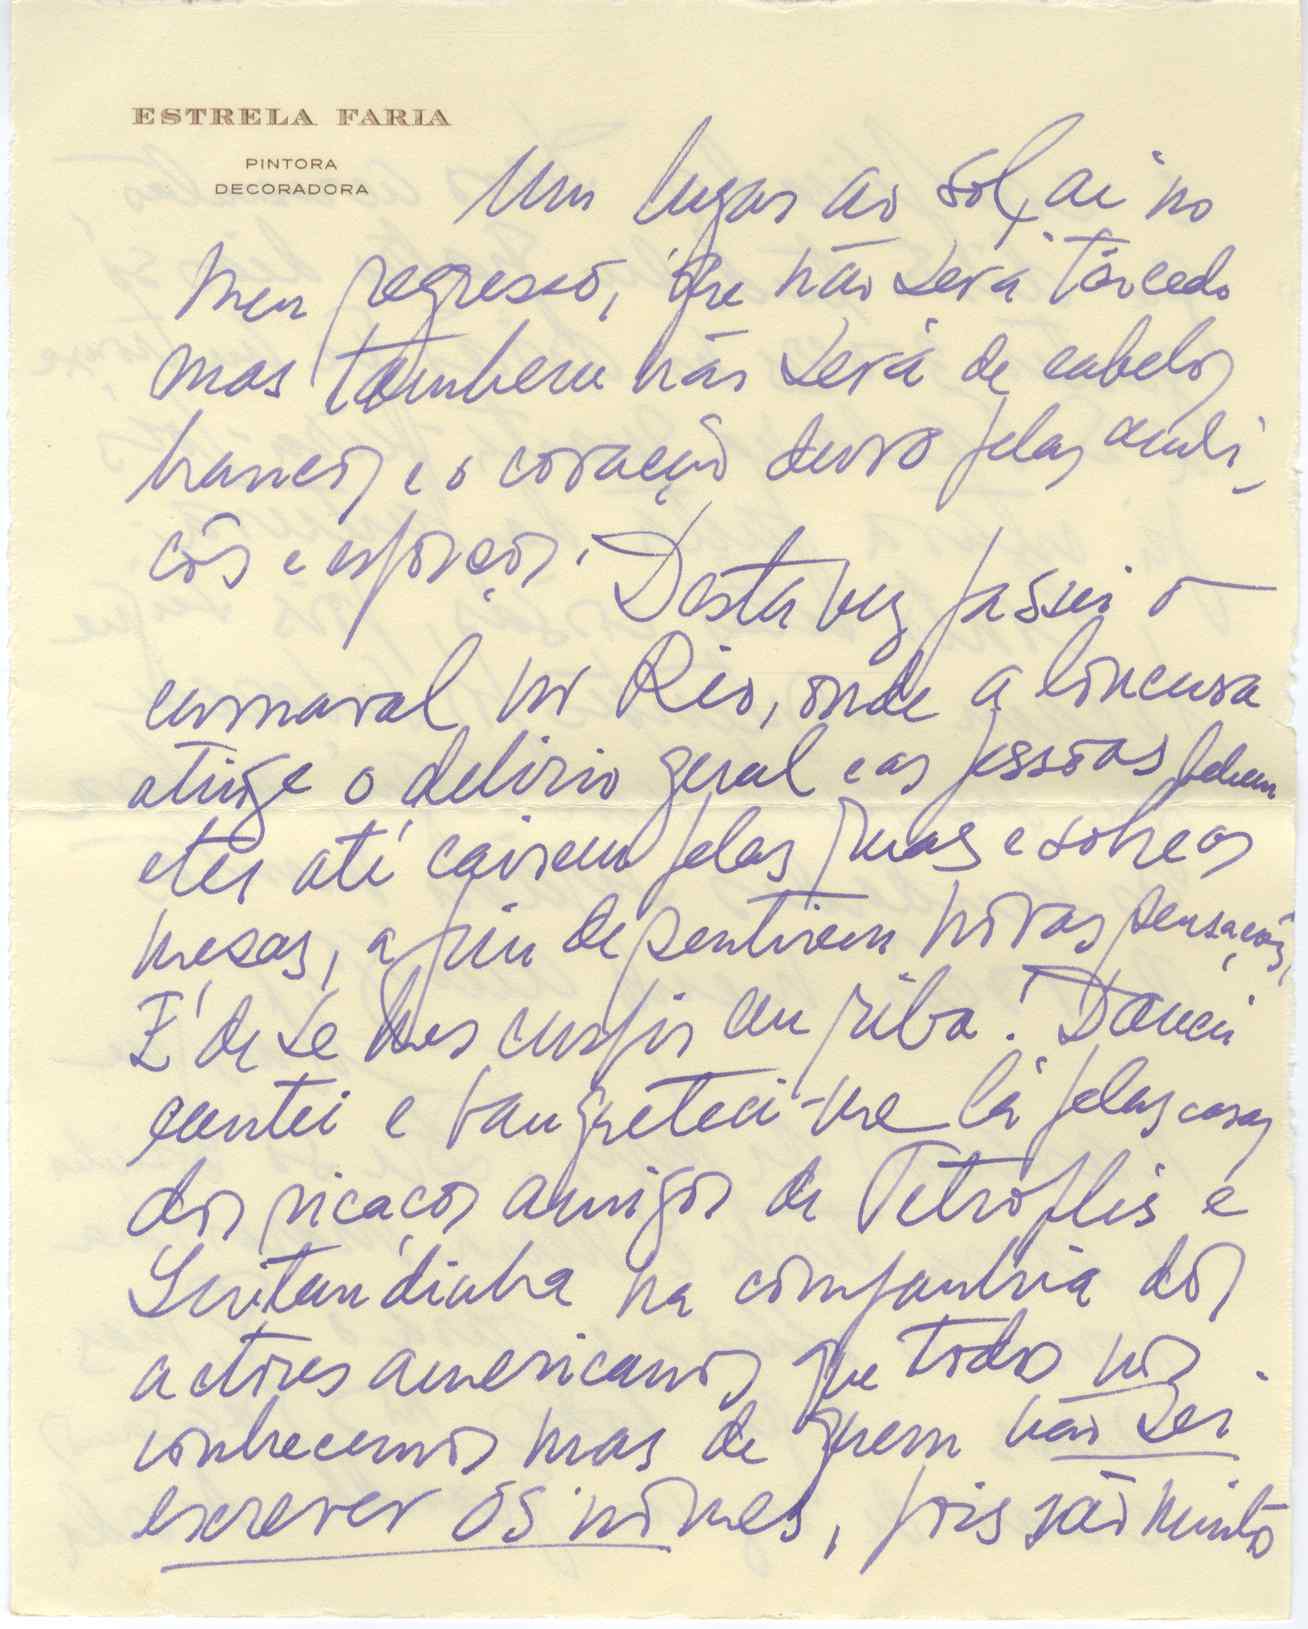 ESTRELA FARIA
PINTORA
DECORADORA
Um lugar ao sol, ai no
meu regresso, que não será tão cedo
mas tambem não será de cabelos
brancos e o coração duro pelas ambi-
cões e esforços. Desta vez passei o
carnaval no Rio, onde a loucura
atinge o delirio geral e as pessoas bebem
eter até cairem pelas ruas e sobre as
mesas, a fim de sentirem novas sensações.
É de se lhes cuspir em riba! Dancei
cantei e banqueteei-me lá pelas casas
dos ricaços amigos de Petroplis e
Quitandinha na companhia dos
actores americanos que todos nós
conhecemos mas de quem não sei
escrever os nomes, pois são muito